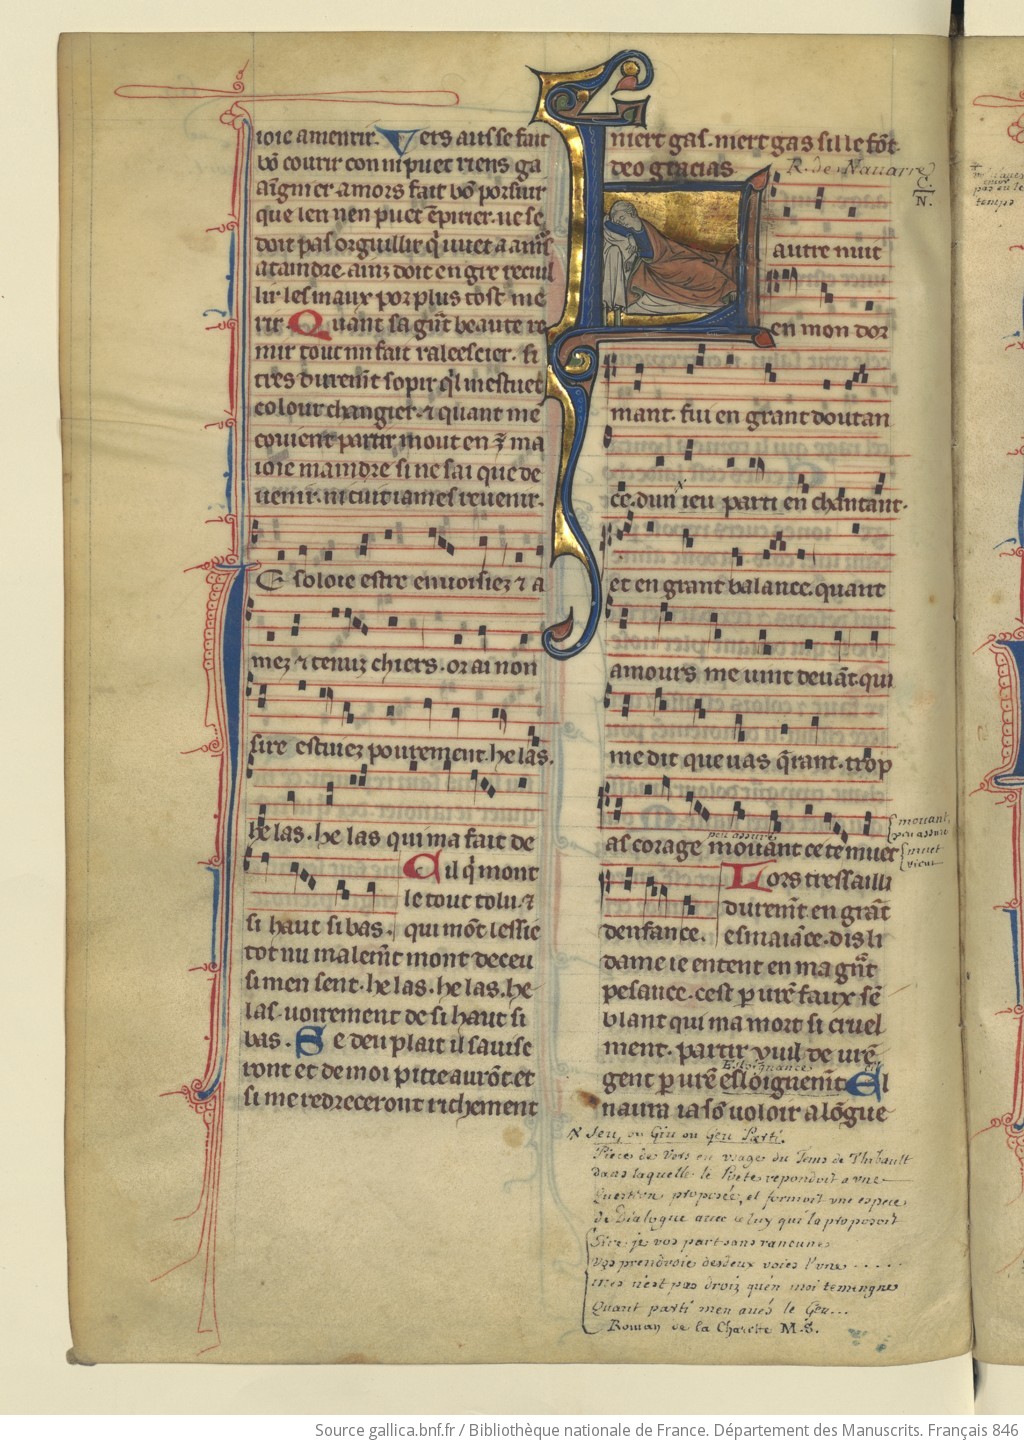 ioie amenrir. Vers aus se fait
bō courir con ni puet riens ga
aīgnier. amors fait bō poʀsiur
que len nen puet ēpirier. ne se
doit pas orguillir q̇ uuet a amˢ
ataindre. ainz doit en gre recuil
lir les maux por plus tost me
rir. Quant sa gn̄t beaute re
mir tout mi fait ralecscier. si
tres durem̄t sopir q̇l mestuet
colour changier. ⁊ quant me
couient partir mout en ma
ioie maindre si ne sai que de
uenir. ni cuit iames reuenir.
E soloie estre enuoisiez ⁊ a
mez ⁊ tenuz chiers. or ai non
sire estuiez pourement. he las.
he las. he las qui ma fait de
si haut si bas. Cil q̇ mont
le tout tolu. ⁊
qui mōt lessie
tot nu malem̄t mont deceu
si men sent. he las. he las. he
las. uoirement de si haut si
bas. Se deu plait il sauise
ront et de moi pitie aurōt et
si me redreceront richement
miert gas. miert gas sil le fōt.
deo gracias
R. de Nauarre
C.
N.
L autre nuit
en mon dor
mant. fui en grant doutan
ce. dun ieu parti en chantant.
et en grant balance. quant
amours me uint deuāt. qui
me dit que uas q̄rant. trop
peu assuré
as corage mouant ce te muet
{mouant,
peu assuré
{muet
vient
denfance. Lors tressailli
durem̄t. en grāt
esmaiāce. dis li
dame ie entent en ma gn̄t
pesance. cest p urē faux sē
blant qui ma mort si cruel
ment. partir vuil de urē
Esloignance
gent p urē esloignem̄t. El
naura ia sō uoloir a lōgue
x Jeu, ou Giu ou Geu Parti.
Piece de Vers en usage du Tems de Thibault
dans laquelle le Poete repondoit a une
Question proposée, et formoit une espece
de Dialogue avec celuy qui la proposoit
Sire je vos part sans rancune
Vos prendroie des deux voies l'une . . . . .
mes n'est pas droiz qu'en moi temaigne
Quant parti m'en avés le Geu...
Roman de la Charete M.S.
Source gallica.bnf.fr / Bibliothèque nationale de France. Département des Manuscrits. Français 846